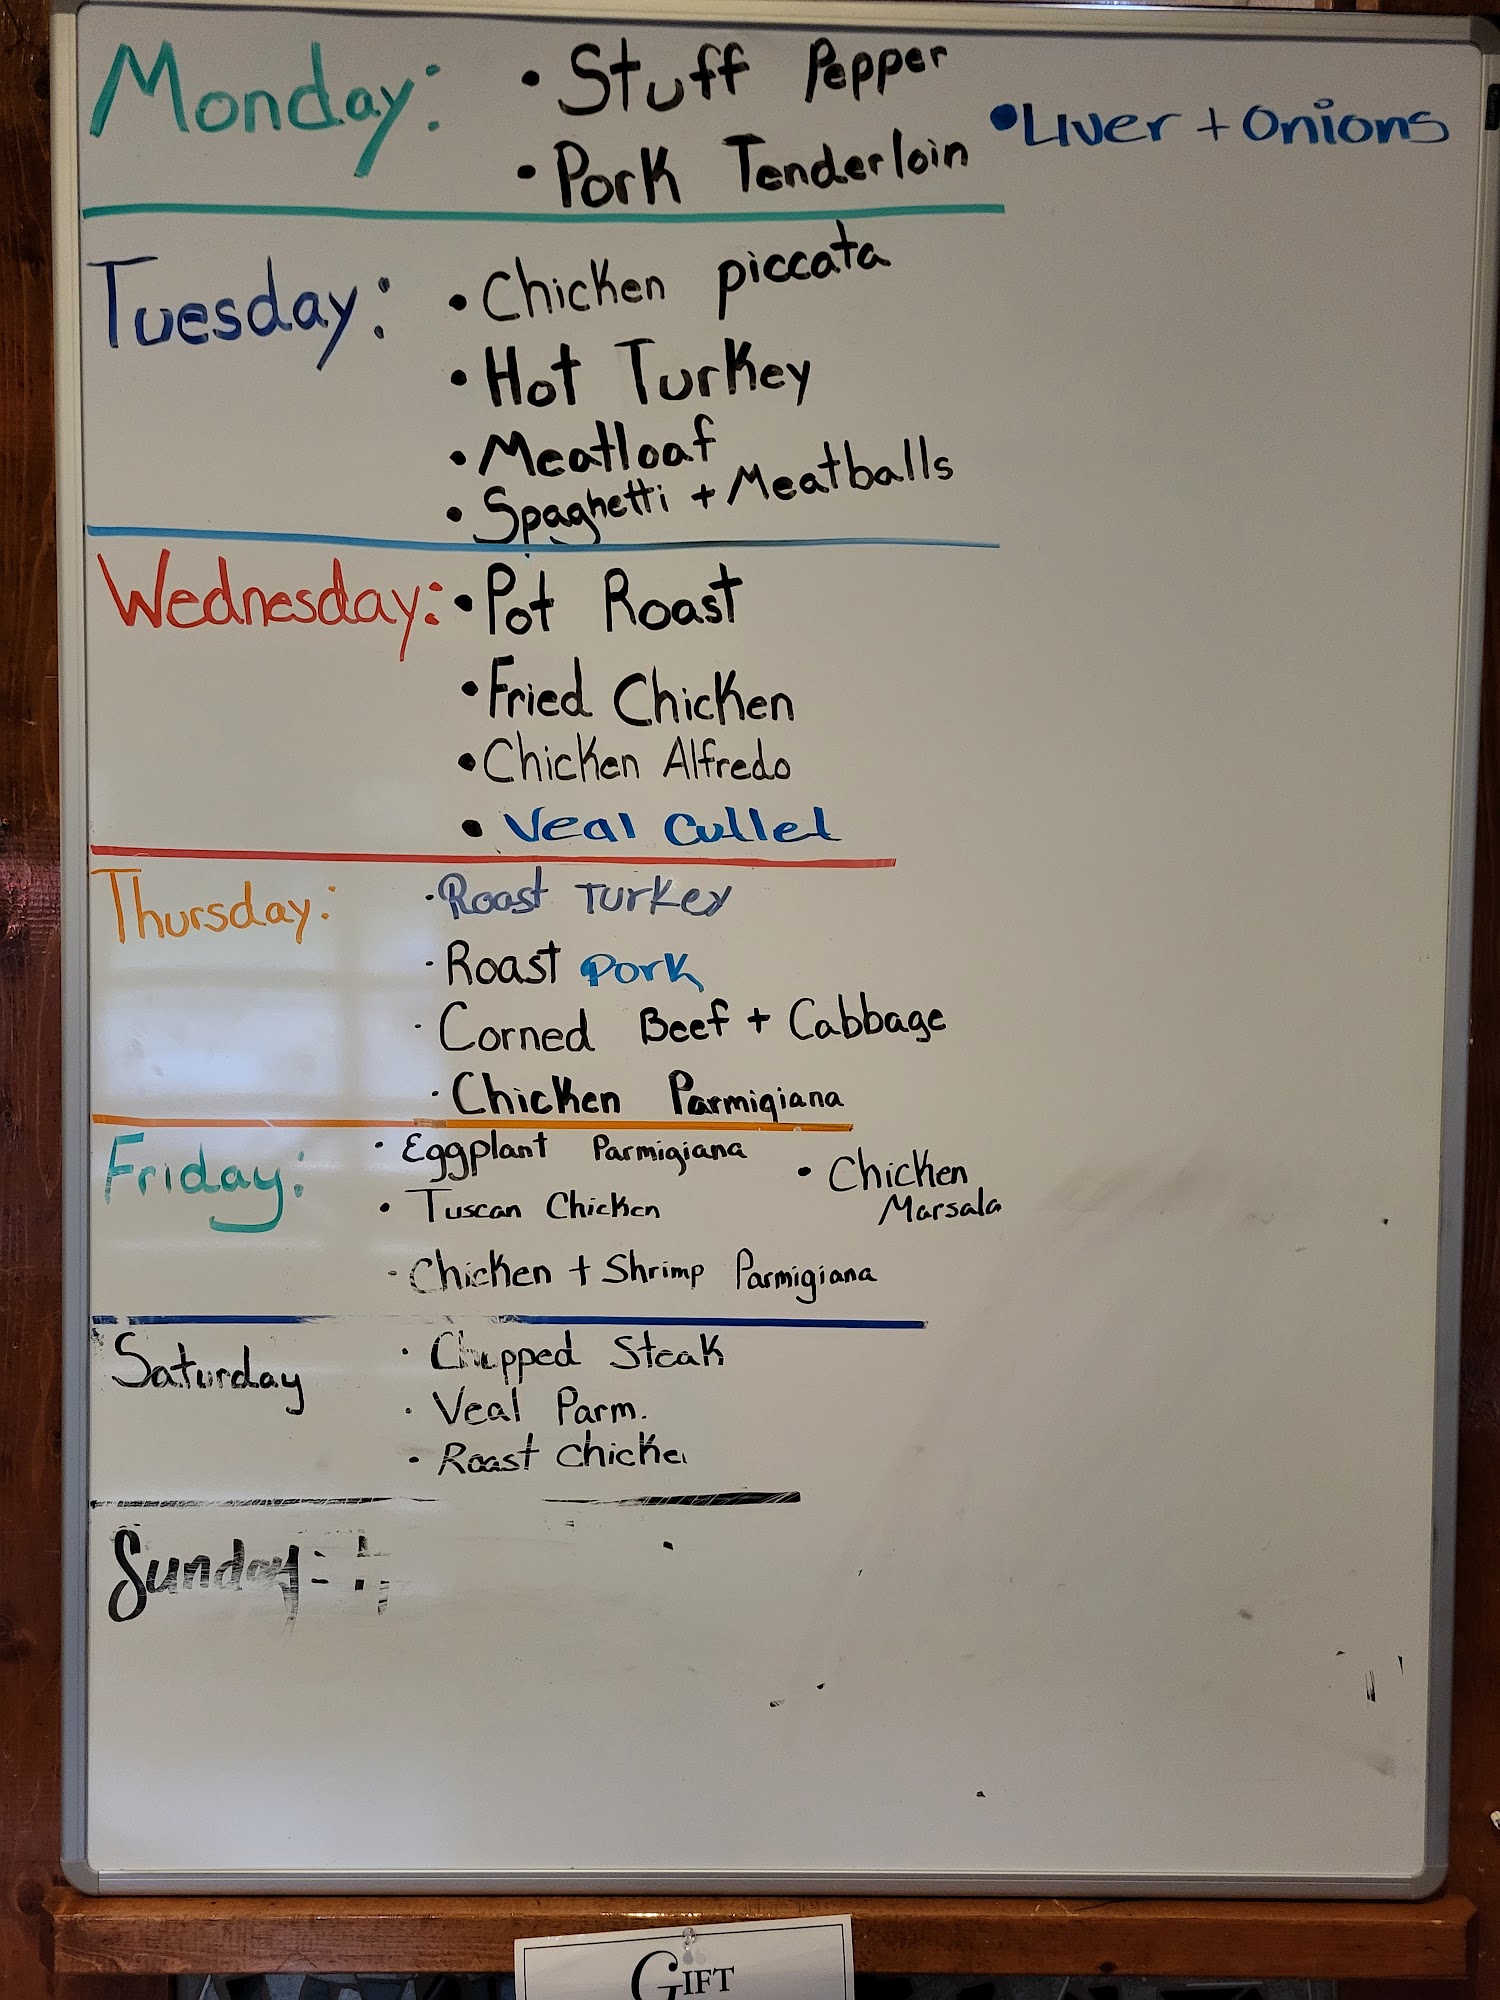 Monday:
• Stuff Pepper
• Liver + Onions
• Pork Tenderloin
Tuesday:
• Chicken piccata
• Hot Turkey
• Meatloaf
• Spaghetti + Meatballs
Wednesday:
• Pot Roast
• Fried Chicken
• Chicken Alfredo
• Veal Cullet
Thursday:
· Roast Turkey
· Roast Pork
· Corned Beef + Cabbage
· Chicken Parmigiana
Friday:
• Eggplant Parmigiana
• Chicken
Marsala
• Tuscan Chicken
- Chicken + Shrimp Parmigiana
Saturday
· Chopped Steak
· Veal Parm.
• Roast Chicken
Sunday:
GIFT